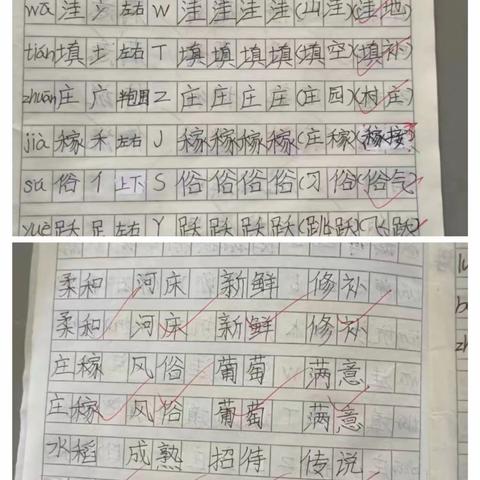 wā 洼 氵 左右 W 洼 洼 洼 洼 (山洼)(洼地)
tián 填 土 左右 T 填 填 填 填 (填空)(填补)
zhuāng 庄 广 半包围 Z 庄 庄 庄 庄 (庄园)(村庄)
jià 稼 禾 左右 J 稼 稼 稼 稼 (庄稼)(稼接)
sú 俗 亻 上下 S 俗 俗 俗 俗 (习俗)(俗气)
yuè 跃 足 左右 Y 跃 跃 跃 跃 (跳跃)(飞跃)
柔和 河床 新鲜 修补
柔和 河床 新鲜 修补
庄稼 风俗 葡萄 满意
庄稼 风俗 葡萄 满意
水稻 成熟 招待 传说